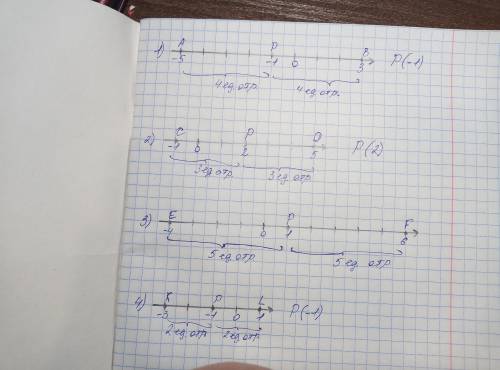 1) A P B
-5 -1 0 3 P(-1)
4 ед.отр. 4 ед.отр.
2) C P D
-1 0 2 5 P(2)
3 ед.отр. 3 ед.отр.
3) E P F
-4 0 1 6
5 ед.отр. 5 ед.отр.
4) K P L
-3 -1 0 1 P(-1)
2 ед.отр. 2 ед.отр.